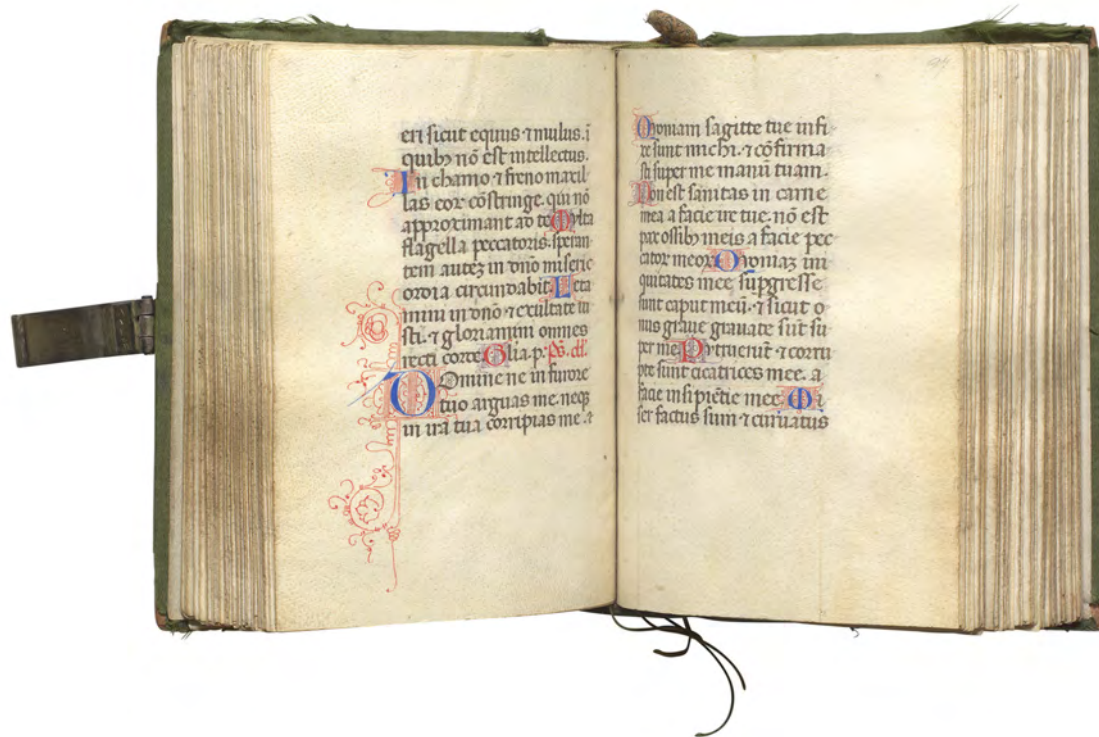 eri sicut equus ⁊ mulus. ī
quibꝫ nō est intellectus.
In chamo ⁊ freno maxil
las eor cōstringe. qui nō
approximant ad te Multa
flagella peccatoris. speran
tem auteꝫ in dn̄o miseric
ordia circundabit. Leta
mini in dn̄o ⁊ exultate iu
sti. ⁊ gloriamini omnes
recti corde Glia p.
Domine ne in furore
tuo arguas me. neqꝫ
in ira tua corripias me. ⁊
Qoniam sagitte tue infi
xe sunt michi. ⁊ cōfirma
sti super me manū tuam.
Non est sanitas in carne
mea a facie ire tue. nō est
pax ossibꝫ meis a facie pec
cator meor Qoniaꝫ ini
quitates mee supgresse
sunt caput meū. ⁊ sicut o
nus graue grauate sūt su
per me Putruerūt ⁊ corru
pte sunt cicatrices mee. a
facie insipiētie mee. Mi
ser factus sum ⁊ curuatus